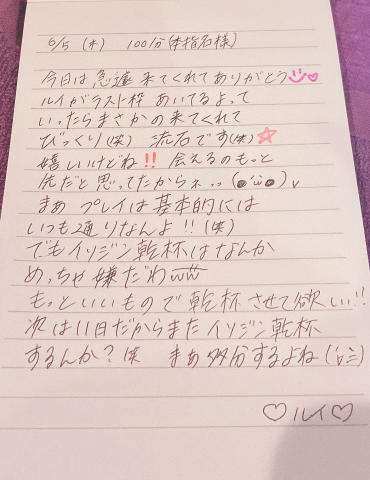 6/5 (木) 100分(本指名様)
今日は急遽来てくれてありがとう
ルイがラスト枠あいてるよって
いったらまさかの来てくれて
びっくり(笑) 流石です(笑)☆
嬉しいけどね!! 会えるのもっと
先だと思ってたからネ、、
まあ プレイは基本的には
いつも通りなんよ!!(笑)
でもイソジン乾杯はなんか
めっちゃ嫌だわww
もっといいもので乾杯させて欲しい!!
次は11日だからまたイソジン乾杯
するんか?笑 まあ多分するよね
♡ルイ♡